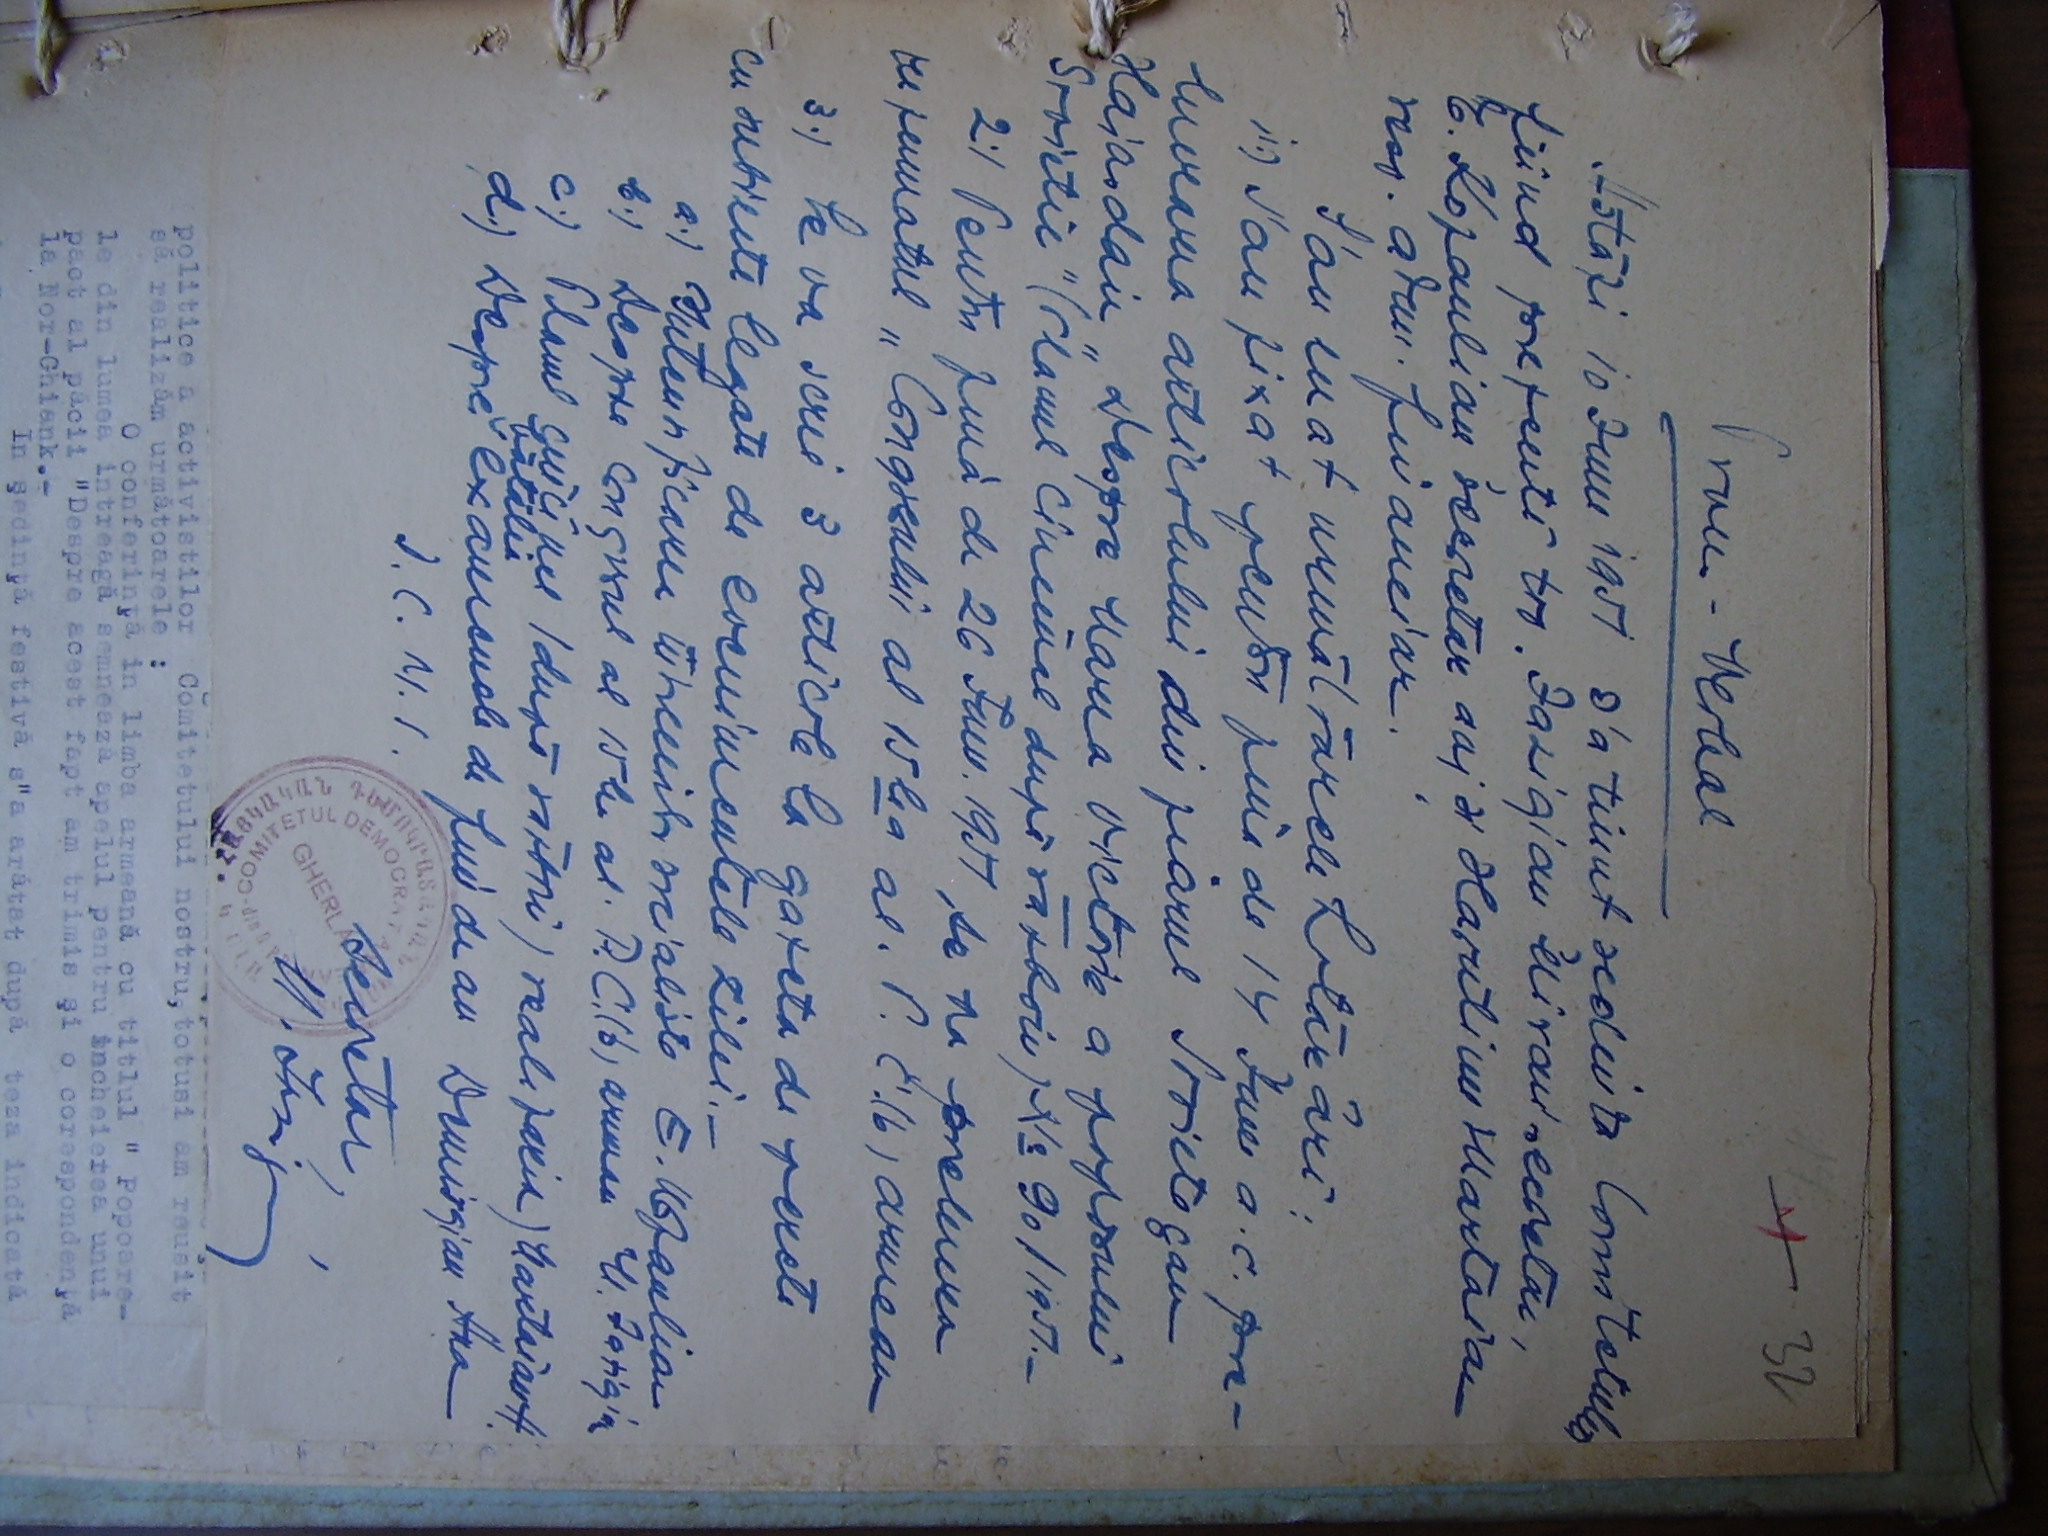 32
Proces-Verbal
Astăzi 10 Iunie 1951 s'a ținut ședința Comitetului
fiind prezenți tov. Zarigian Miran secretar,
E. Kopaulian secretar adj. și Harutiun Hartaian
resp. adm. financiar.
S'au luat următoarele hotărâri:
1) S'au fixat pentru până de 14 Iunie a. c. pre-
lucrarea articolului din ziarul Sovietagan
Haiasdan „Despre marea victorie a poporului
Sovietic" (Planul cincinal după război) No 90/1951.-
2.) Pentru până de 26 Iunie 1951, se va prelucra
referatul „Congresului al 15lea al. P. C. (b)
3.) Se va scrie 3 articole la gazeta de perete
cu subiecte legate de evenimentele zilei.-
a.) Intensificarea întrecerilor socialiste E. Kopaulian
b.) Despre Congresul al 15lea al. P.C.(b)
c.) Planul cincinal (după război) realizări
bătălia
d.) Despre examenele de fine de an
S. C. N. I.
Secretar,
ՀԱՅԿԱԿԱՆ ԴԵՄՈԿՐԱՏԱԿԱՆ
COMITETUL DEMOCRAT
GHERLA
politice a activistilor Comitetului nostru, totusi am reusit
să realizăm următoarele :
O conferință in limba armeană cu titlul " Popoare-
le din lumea întreagă semnează apelul pentru încheierea unui
pact al păcii "Despre acest fapt am trimis și o corespondență
la Nor-Ghiank.-
In ședință festivă s"a arătat după teza indicată